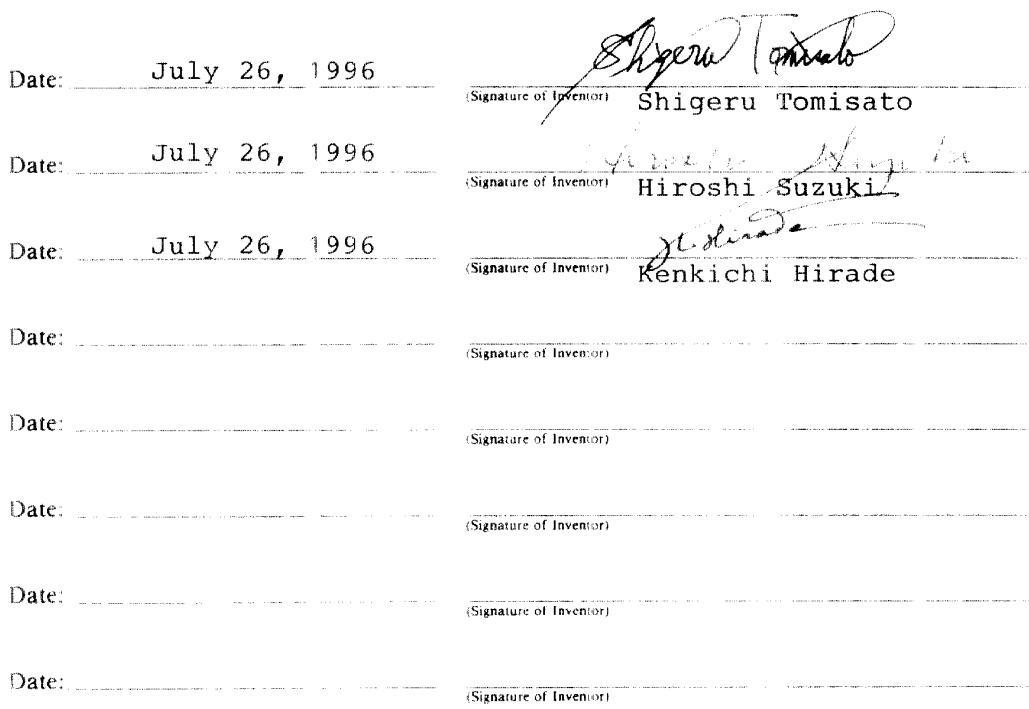 Date: July 26, 1996 Shigeru Tomisato
(Signature of Inventor) Shigeru Tomisato
Date: July 26, 1996 Hiroshi Suzuki
(Signature of Inventor) Hiroshi Suzuki
Date: July 26, 1996 K. Hirade
(Signature of Inventor) Kenkichi Hirade
Date:
(Signature of Inventor)
Date:
(Signature of Inventor)
Date:
(Signature of Inventor)
Date:
(Signature of Inventor)
Date:
(Signature of Inventor)